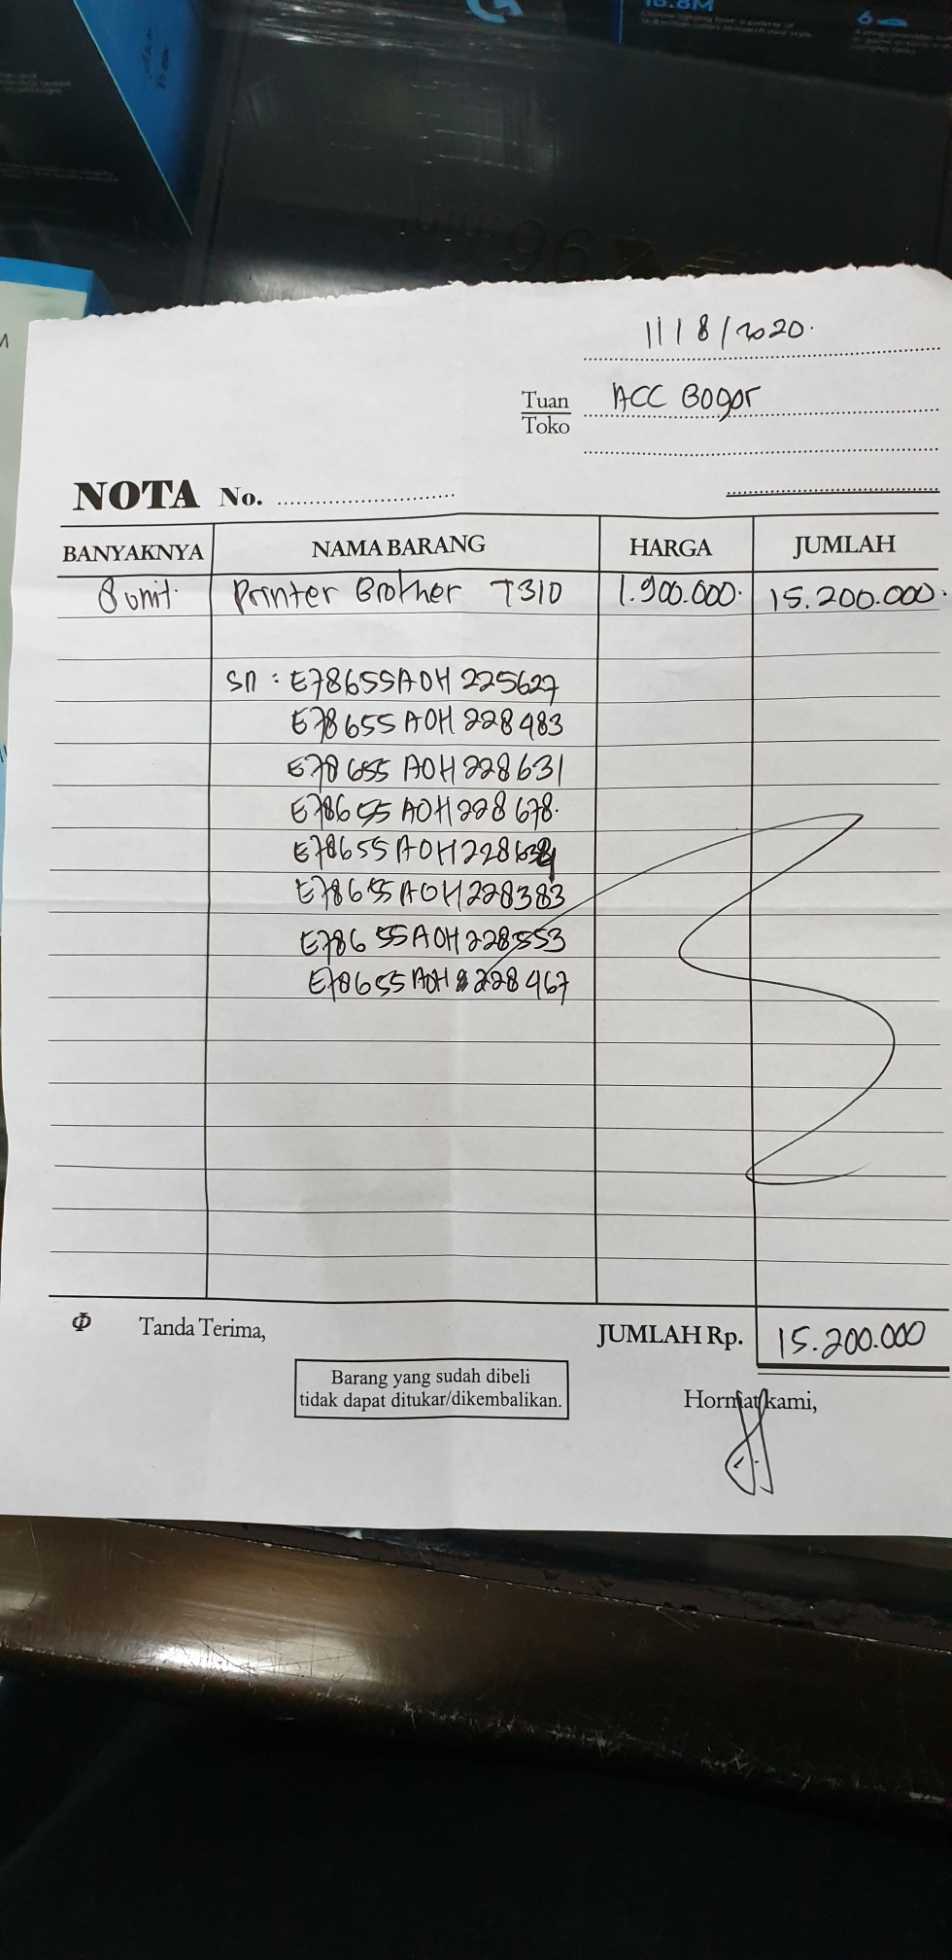 18.8M
11/8/2020.
Tuan
Toko
ACC Bogor
NOTA No.
BANYAKNYA NAMA BARANG HARGA JUMLAH
8 unit. Printer Brother T310 1.900.000. 15.200.000.
Sn : E78655A0H 225627
E78655A0H228483
E78655A0H228631
E78655A0H228678.
E78655A0H228634
E78655A0H228383
E78655A0H228553
E78655A0H228467
Tanda Terima,
JUMLAH Rp. 15.200.000
Barang yang sudah dibeli
tidak dapat ditukar/dikembalikan.
Hormat kami,